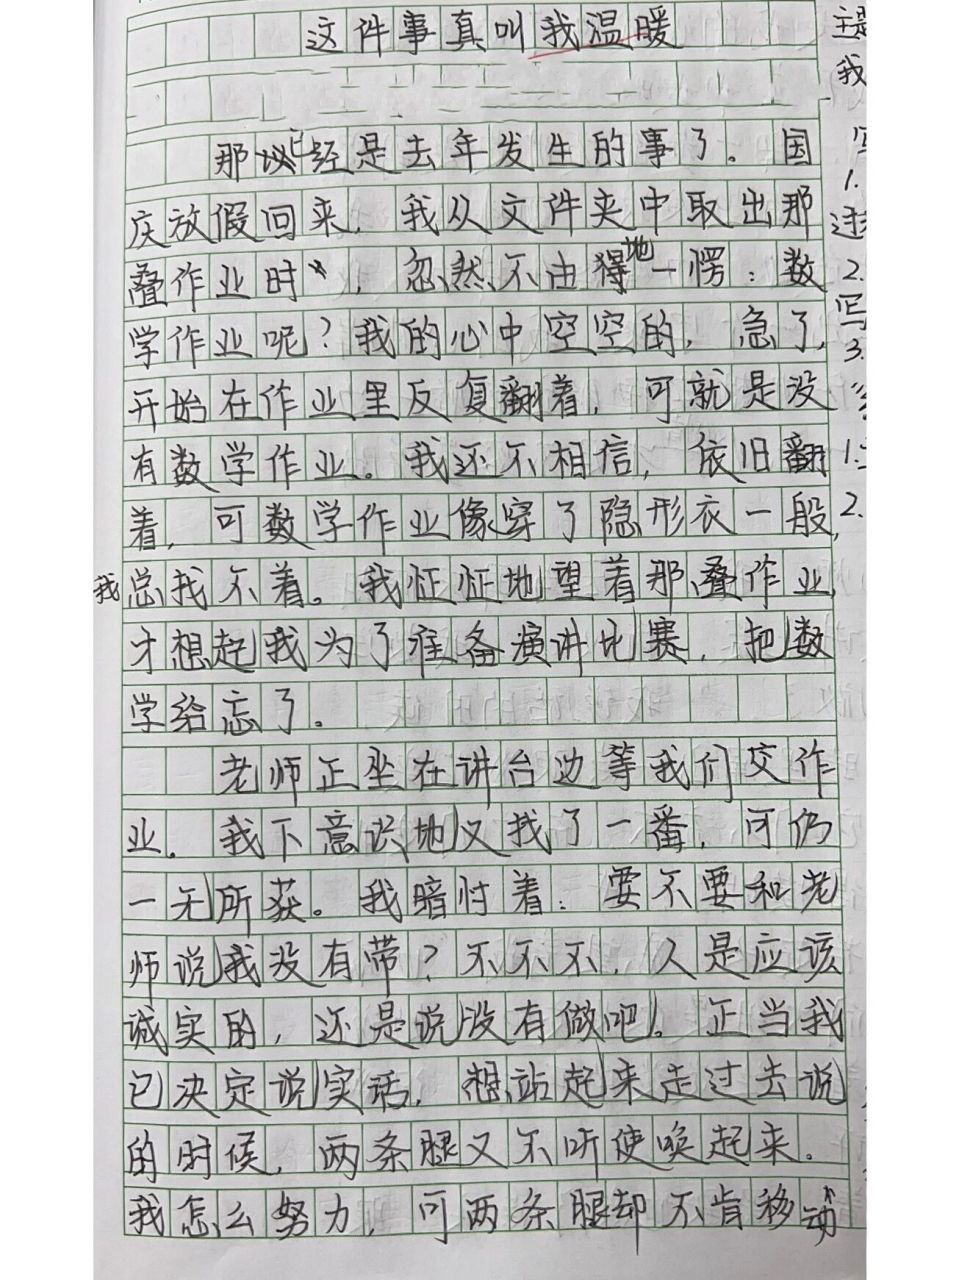 这件事真叫我温暖
那已经是去年发生的事了。国
庆放假回来，我从文件夹中取出那
叠作业时，忽然不由得地一愣：数
学作业呢？我的心中空空的，急了，
开始在作业里反复翻着，可就是没
有数学作业。我还不相信，依旧翻
着，可数学作业像穿了隐形衣一般，
我总找不着。我怔怔地望着那叠作业，
才想起我为了准备演讲比赛，把数
学给忘了。
老师正坐在讲台边等我们交作
业。我下意识地又找了一番，可仍
一无所获。我暗忖着：要不要和老
师说我没有带？不不不，人是应该
诚实的，还是说没有做吧。正当我
已决定说实话，想站起来走过去说
的时候，两条腿又不听使唤起来。
我怎么努力，可两条腿却不肯移动
主是
我
写
1.
2.
写
3.
1.
2.